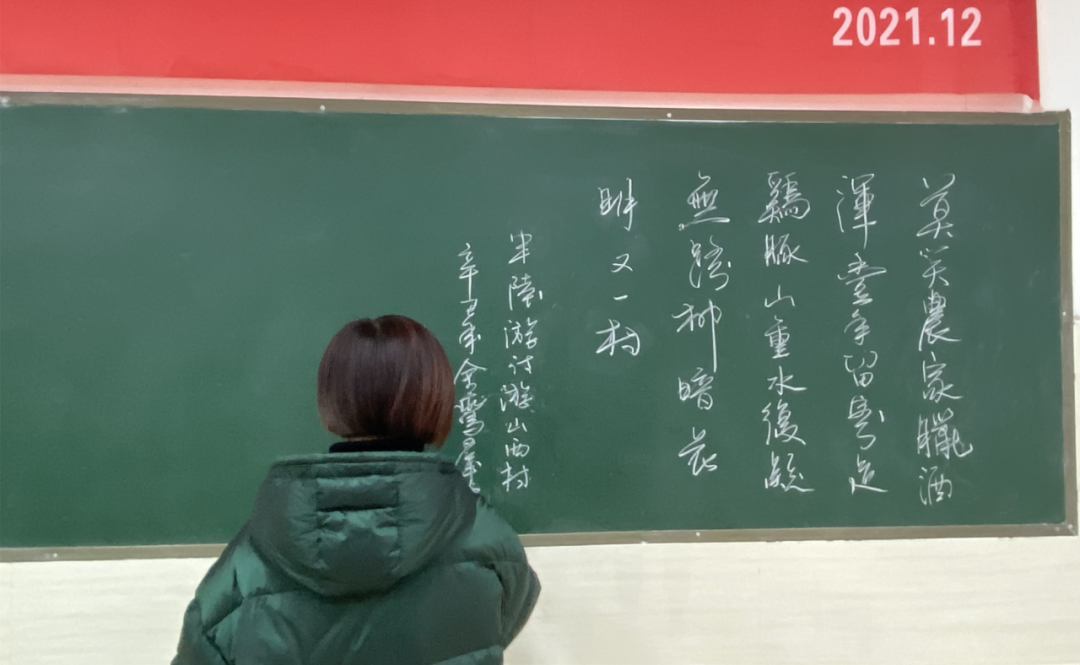 2021.12
莫笑農家臘酒
渾豐年留客足
鷄豚山重水復疑
無路柳暗花
明又一村
宋陸游诗遊山西村
辛丑年余鶯